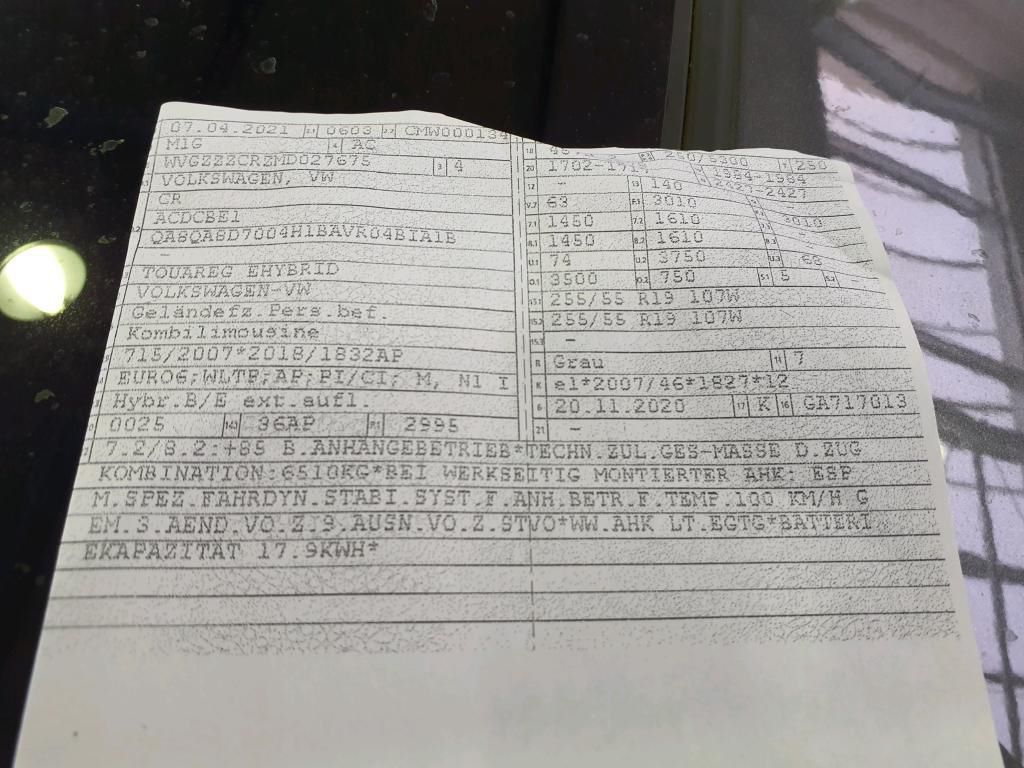 07.04.2021 2.1 0603 2.2 CMW000134
M1G 4 AC
WVGZZZCRZMD027675 3 4
VOLKSWAGEN, VW
CR
ACDCBE1
QA8QA8D7004H1BAVR04BIA1B
-
TOUAREG EHYBRID
VOLKSWAGEN-VW
Geländefz.Pers.bef.
Kombilimousine
715/2007*2018/1832AP
EURO6;WLTP;AP;PI/CI; M, N1 I
Hybr.B/E ext.aufl.
0025 14.1 36AP P.1 2995
18 250/5300 T 250
20 1702-1717 1984-1984
12 - 13 140 2427-2427
V.7 63 F.1 3010
7.1 1450 7.2 1610 3010
8.1 1450 8.2 1610 8.3 -
U.1 74 U.2 3750 U.3 68
O.1 3500 O.2 750 S.1 5 S.2
15.1 255/55 R19 107W
15.2 255/55 R19 107W
15.3 -
R Grau 11 7
K e1*2007/46*1827*12
6 20.11.2020 17 K 16 GA717013
21 -
7.2/8.2:+85 B.ANHÄNGEBETRIEB*TECHN.ZUL.GES-MASSE D.ZUG
KOMBINATION:6510KG*BEI WERKSEITIG MONTIERTER AHK: ESP
M.SPEZ.FAHRDYN.STABI.SYST.F.ANH.BETR.F.TEMP.100 KM/H G
EM.3.AEND.VO.Z.9.AUSN.VO.Z.STVO*WW.AHK LT.EGTG*BATTERI
EKAPAZITÄT 17.9KWH*